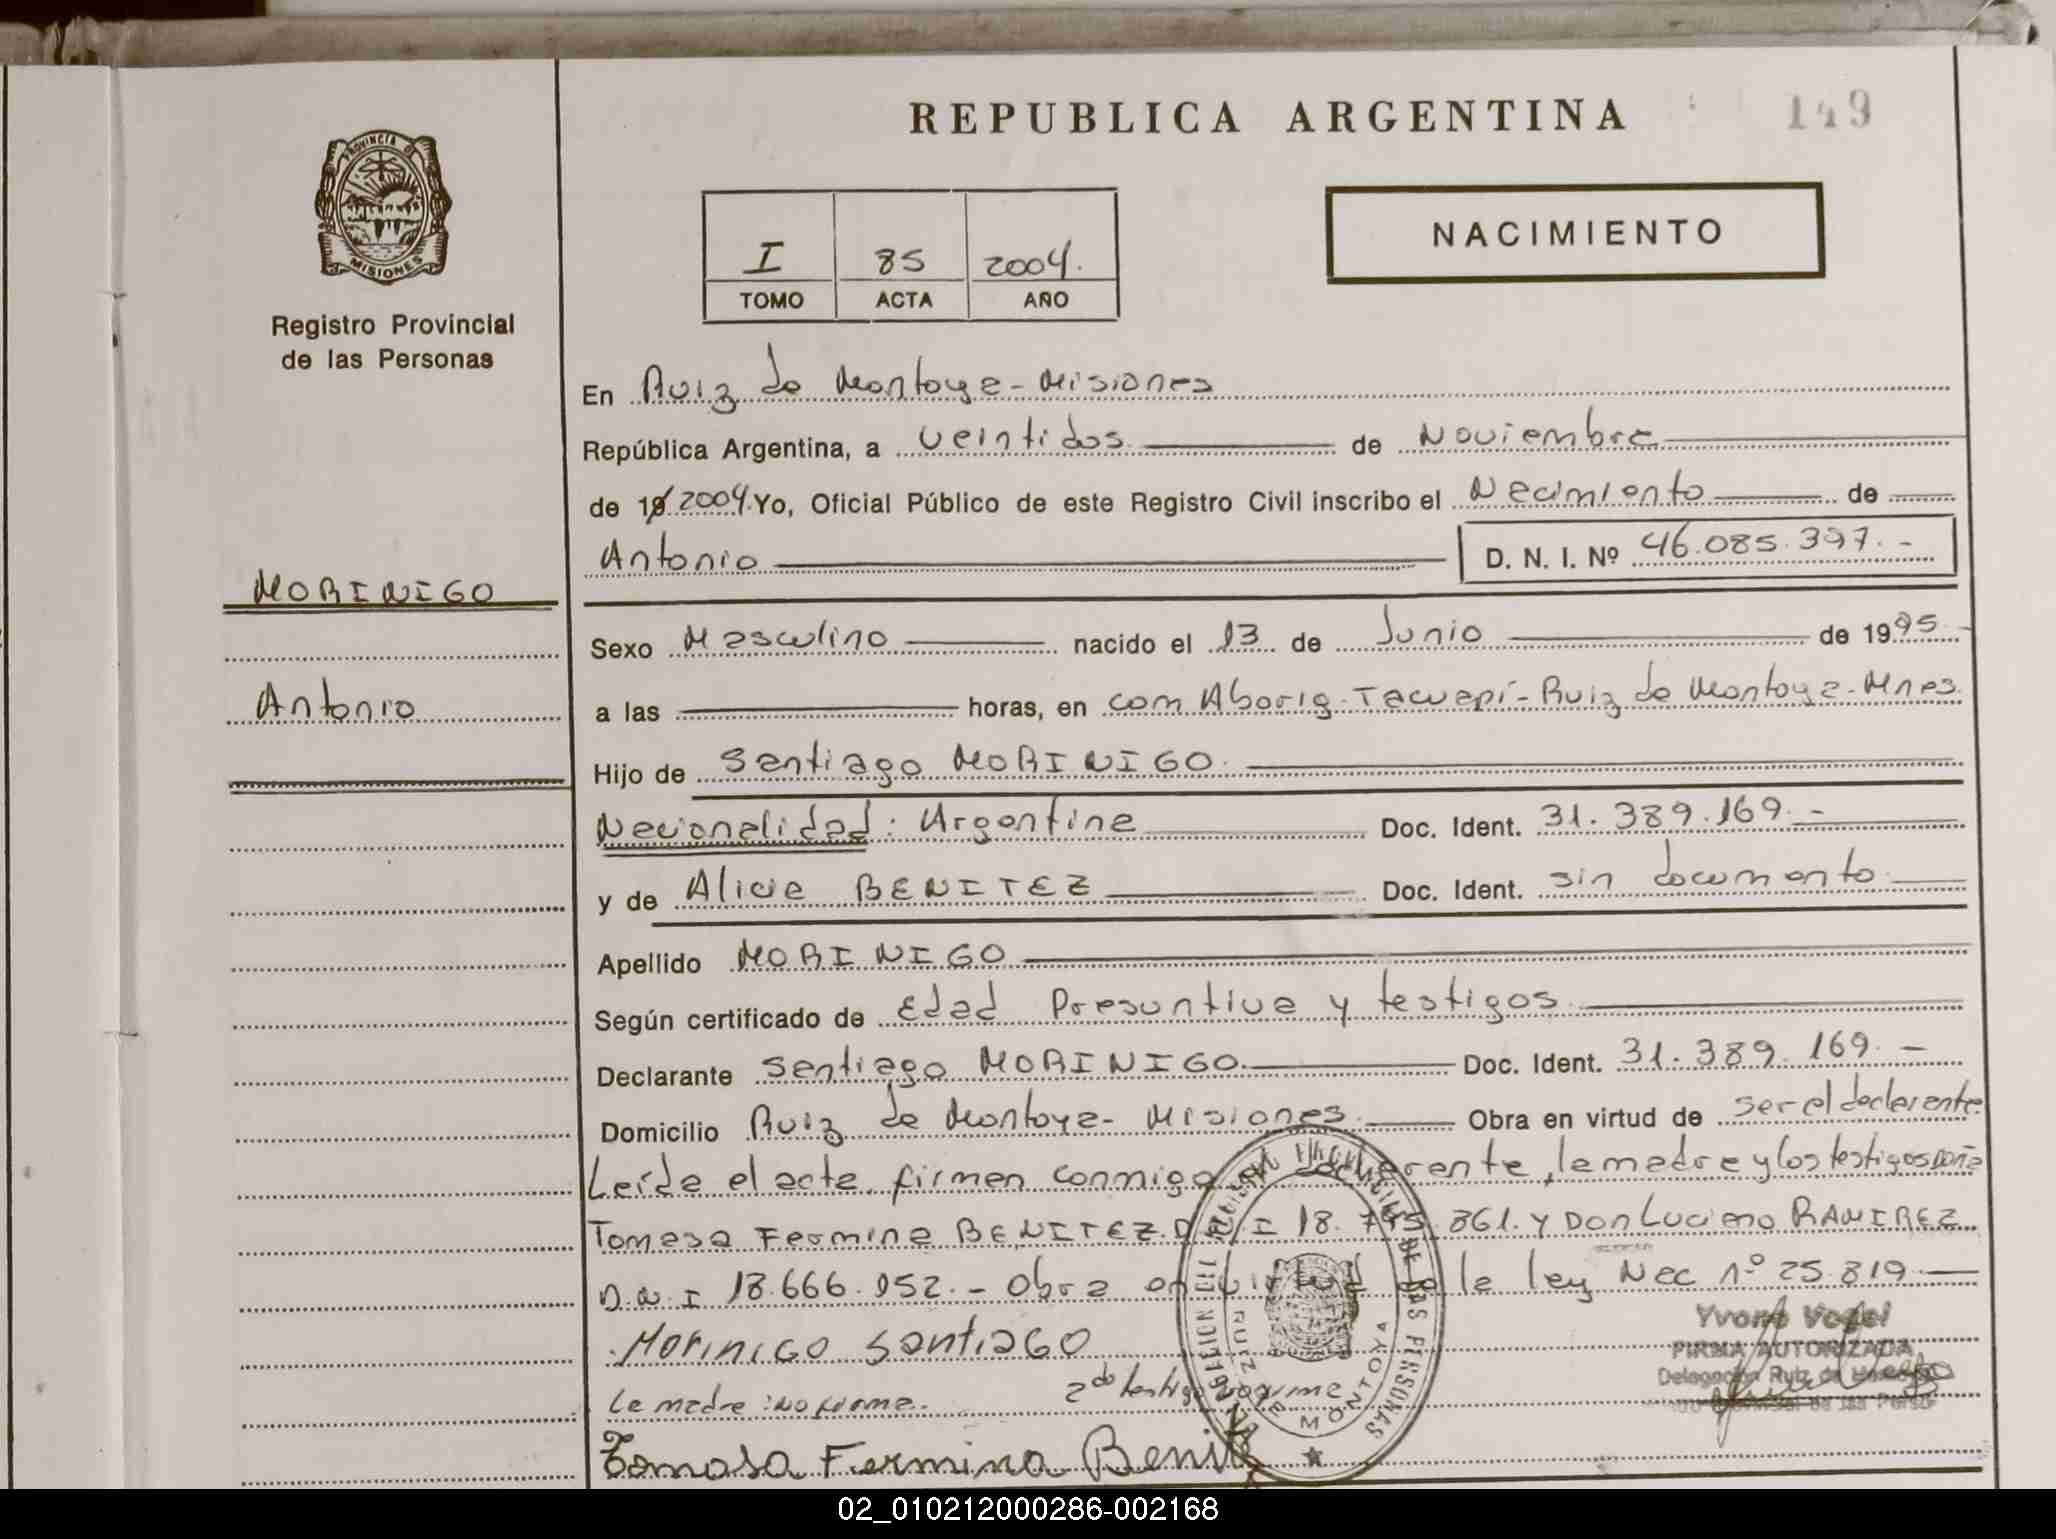 REPUBLICA ARGENTINA
149
PROVINCIA DE
MISIONES
Registro Provincial
de las Personas
I 85 2004.
TOMO ACTA AÑO
NACIMIENTO
En Ruiz de Montoya - Misiones
República Argentina, a veintidos de Noviembre
de 19 2004. Yo, Oficial Público de este Registro Civil inscribo el Nacimiento de
Antonio D. N. I. Nº 46.085.397.-
MORINIGO
Sexo Masculino nacido el 13 de Junio de 1995
Antonio
a las horas, en com Aborig. Tacuapí - Ruiz de Montoya - Mnes.
Hijo de Santiago MORINIGO.
Nacionalidad: Argentina Doc. Ident. 31.389.169.-
y de Alicia BENITEZ Doc. Ident. sin documento
Apellido MORINIGO
Según certificado de Edad Presuntiva y testigos
Declarante Santiago MORINIGO. Doc. Ident. 31.389.169.-
Domicilio Ruiz de Montoya - Misiones. Obra en virtud de ser el declarante.
Leída el acta, firman conmigo el declarante, la madre y los testigos doña
Tomasa Fermina BENITEZ D.N.I 18. 861. y Don Luciano RAMIREZ
D.N.I 18.666.052.- Obra en virtud de la ley Nac nº 25.819.
Morinigo Santiago
La madre: no firma. 2do testigo no firma
Tomasa Fermina Benit
DELEGACION DEL REGISTRO PROVINCIAL DE LAS PERSONAS
RUIZ DE MONTOYA
Yvone Vogel
FIRMA AUTORIZADA
Delegación Ruiz de Montoya
de las Personas
02_010212000286-002168